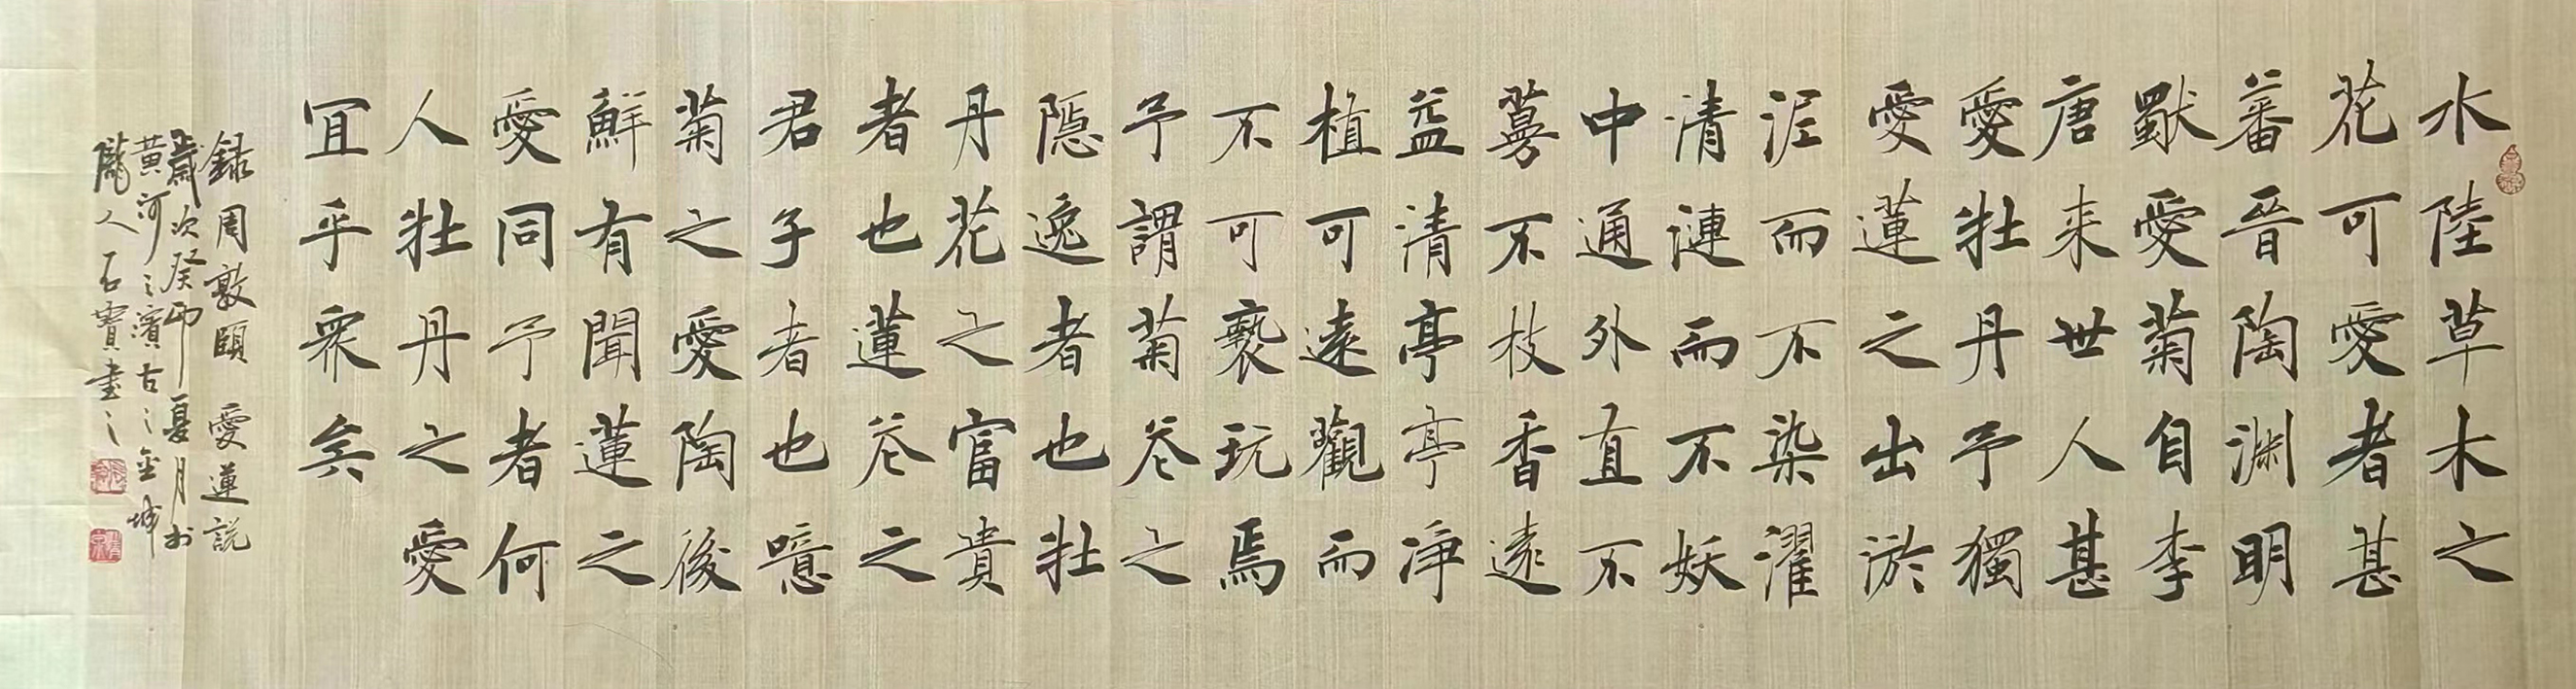 水陸草木之
花可愛者甚
蕃晉陶渊明
獨愛菊自李
唐来世人甚
愛牡丹予獨
愛蓮之出淤
泥而不染濯
清漣而不妖
中通外直不
蔓不枝香遠
益清亭亭淨
植可遠觀而
不可褻玩焉
予謂菊花之
隱逸者也牡
丹花之富貴
者也蓮花之
君子者也噫
菊之愛陶後
鮮有聞蓮之
愛同予者何
人牡丹之愛
宜乎眾矣
録周敦頤 愛蓮説
歲次癸卯夏月於
黄河之濱古之金城
隴人石寶書之